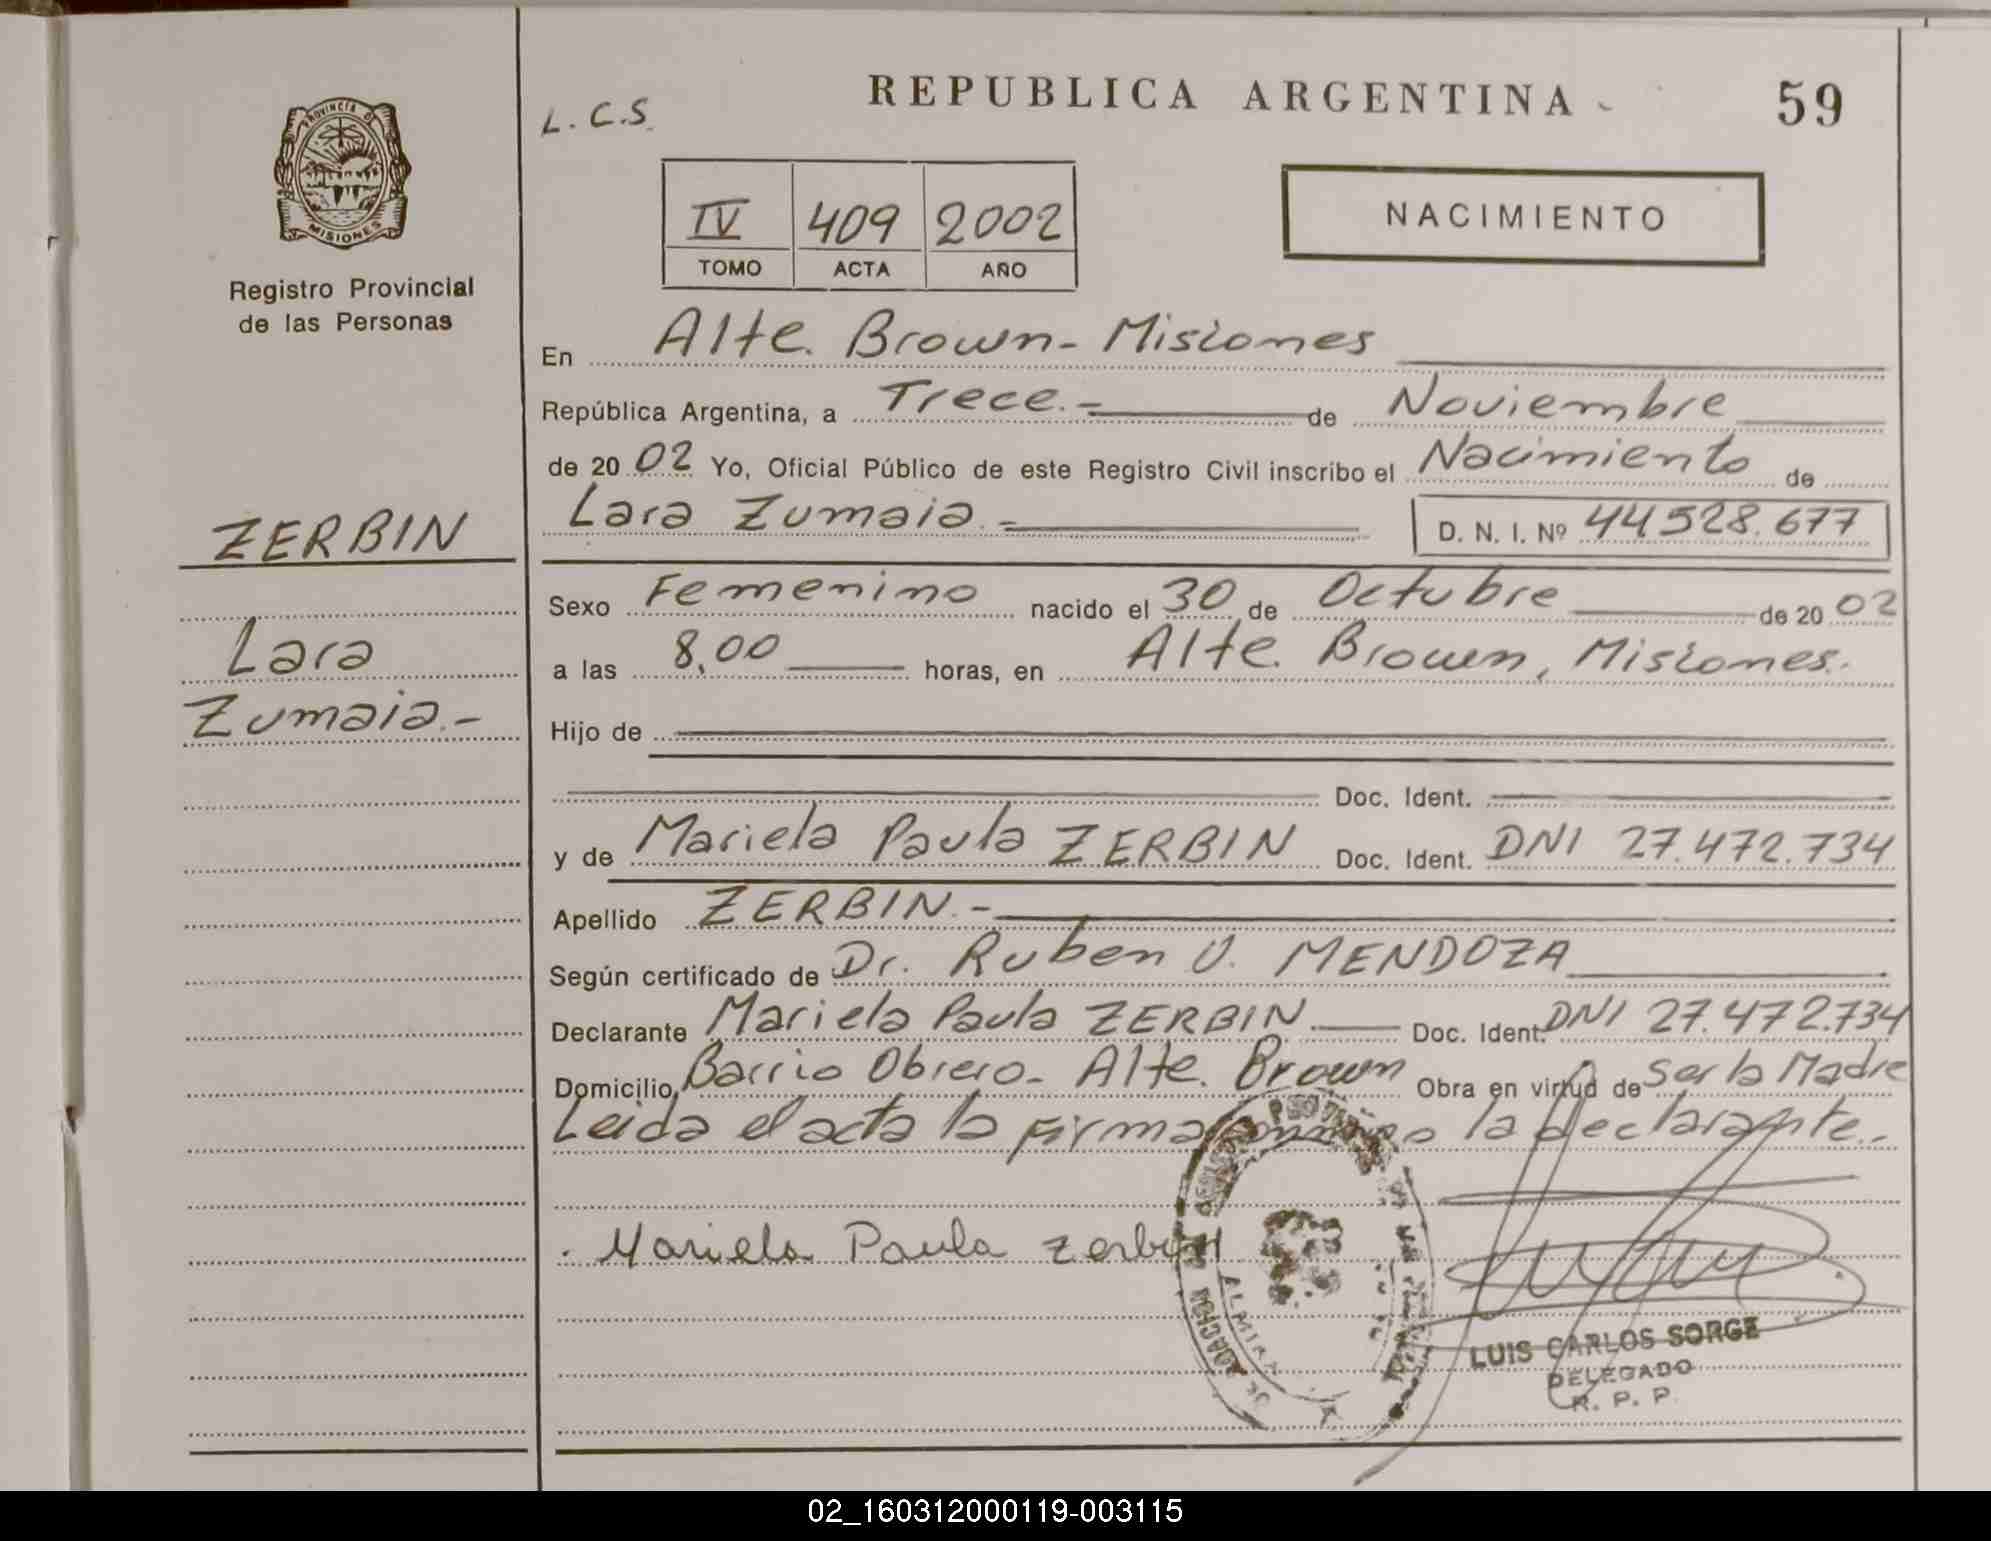 REPUBLICA ARGENTINA
59
L. C. S.
PROVINCIA DE
MISIONES
Registro Provincial
de las Personas
IV 409 2002
TOMO ACTA AÑO
NACIMIENTO
En Alte. Brown - Misiones
República Argentina, a Trece.- de Noviembre
de 20 02 Yo, Oficial Público de este Registro Civil inscribo el Nacimiento de
Lara Zumaia.- D. N. I. Nº 44528.677
ZERBIN
Lara
Zumaia.-
Sexo Femenino nacido el 30 de Octubre de 20 02
a las 8,00 horas, en Alte. Brown, Misiones.
Hijo de
Doc. Ident.
y de Mariela Paula ZERBIN Doc. Ident. DNI 27.472.734
Apellido ZERBIN.-
Según certificado de Dr. Ruben U. MENDOZA
Declarante Mariela Paula ZERBIN Doc. Ident. DNI 27.472.734
Domicilio Barrio Obrero - Alte. Brown Obra en virtud de Ser la Madre
Leida el acta la firma la declarante.-
Mariela Paula Zerbin
LUIS CARLOS SORGE
DELEGADO
R. P. P.
02_160312000119-003115